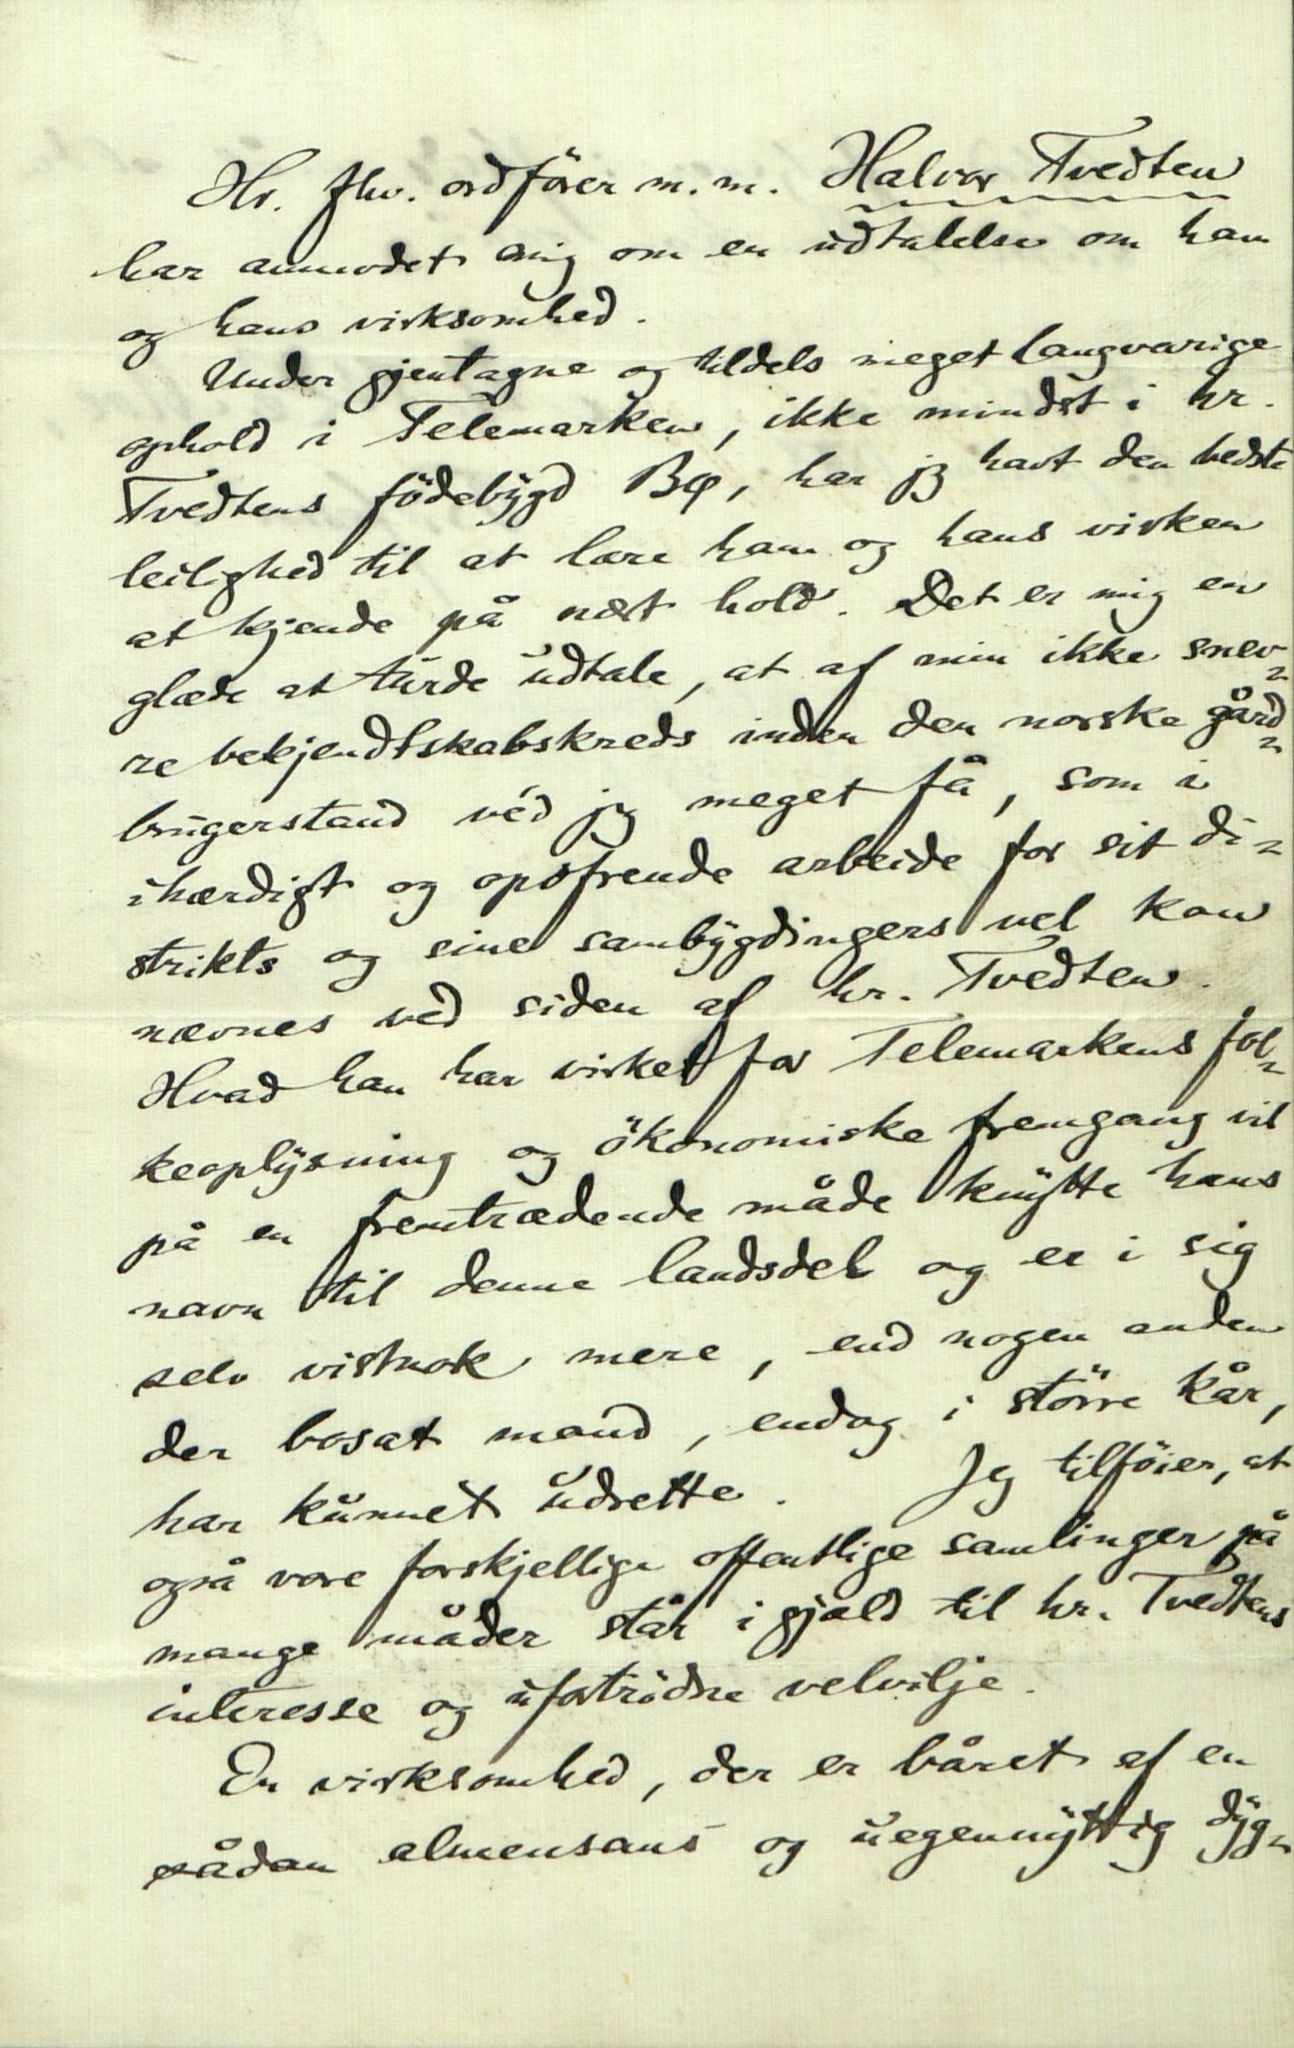 Hr. fhv. ordfører m.m. Halvor Tvedten
har anmodet mig om en udtalelse om ham
og hans virksomhed.
Under gjentagne og tildels meget langvarige
ophold i Telemarken, ikke mindst i hr.
Tvedtens födebygd Bø, har jeg havt den bedste
leilighed til at lære ham og hans virken
at kjende på nært hold. Det er mig en
glæde at turde udtale, at af min ikke snev-
re bekjendtskabskreds inden den norske gård-
brugerstand véd jeg meget få, som i
ihærdigt og opofrende arbeide for sit di-
strikts og sine sambygdingers vel kan
nævnes ved siden af hr. Tvedten.
Hvad han har virket for Telemarkens fol-
keoplysning og ökonomiske fremgang vil
på en fremtrædende måde knytte hans
navn til denne landsdel og er i sig
selv vistnok mere, end nogen anden
der bosat mand, endog i större kår,
har kunnet udrette. Jeg tilföier, at
også vore forskjellige offentlige samlinger på
mange måder står i gjæld til hr. Tvedtens
interesse og ufortrödne velvilje.
En virksomhed, der er båret af en
sådan almensans og uegennyttig dyg-